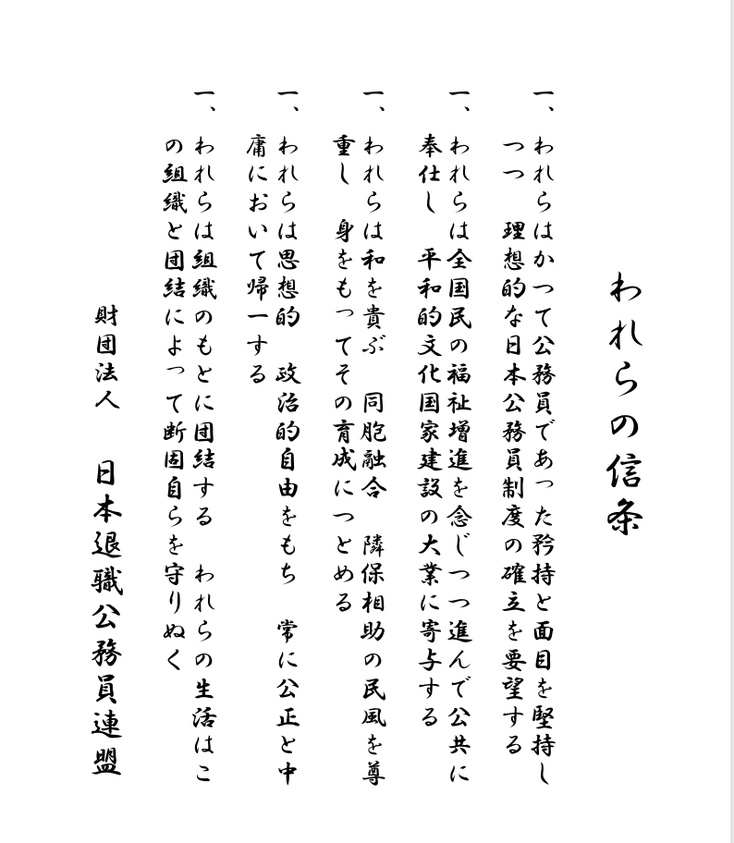 われらの信条
一、われらはかつて公務員であった矜持と面目を堅持し
つつ　理想的な日本公務員制度の確立を要望する
一、われらは全国民の福祉増進を念じつつ進んで公共に
奉仕し　平和的文化国家建設の大業に寄与する
一、われらは和を貴ぶ　同胞融合　隣保相助の民風を尊
重し　身をもってその育成につとめる
一、われらは思想的　政治的自由をもち　常に公正と中
庸において帰一する
一、われらは組織のもとに団結する　われらの生活はこ
の組織と団結によって断固自らを守りぬく
財団法人　日本退職公務員連盟